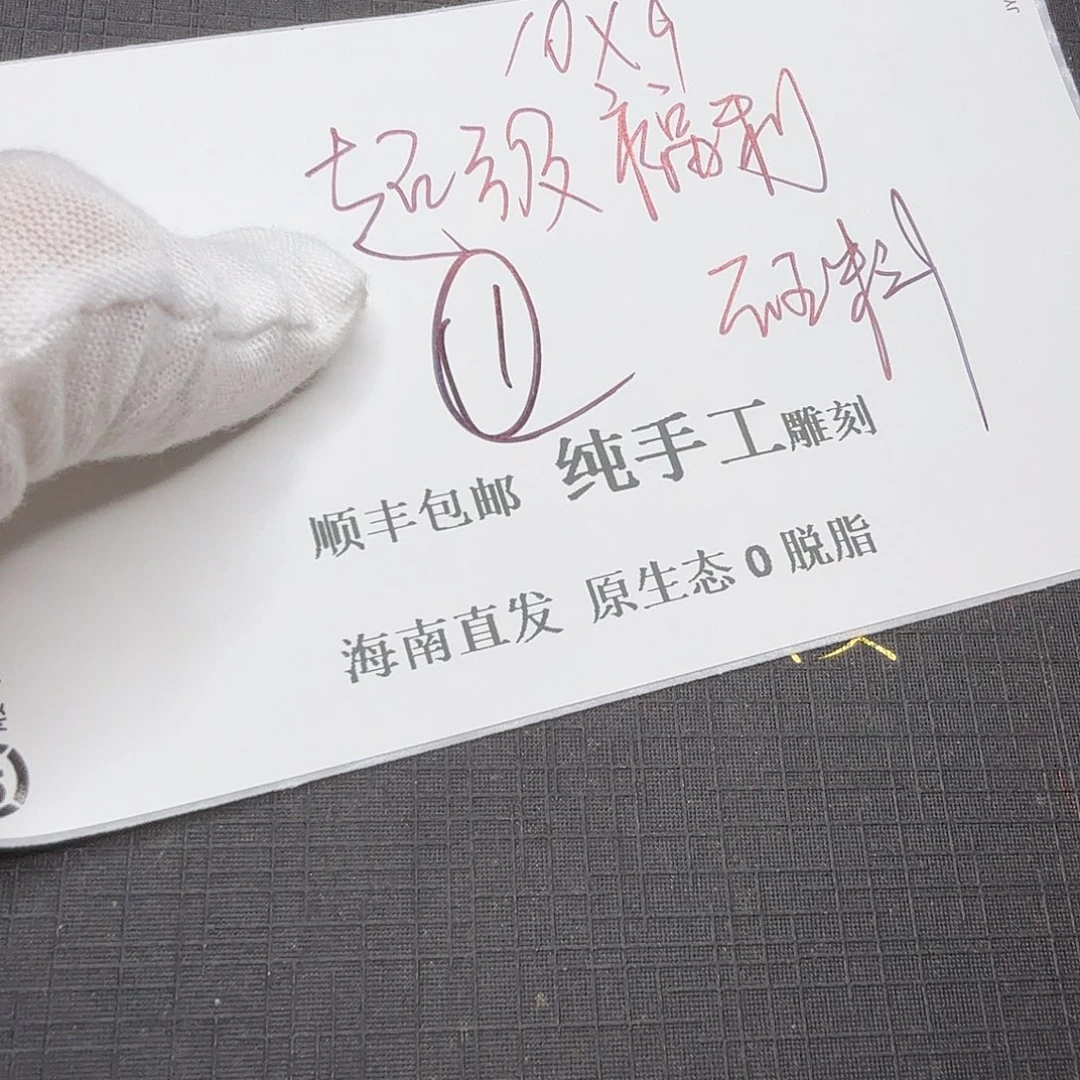 10X9
超级福利
①
砗料
顺丰包邮 纯手工雕刻
海南直发 原生态0脱脂